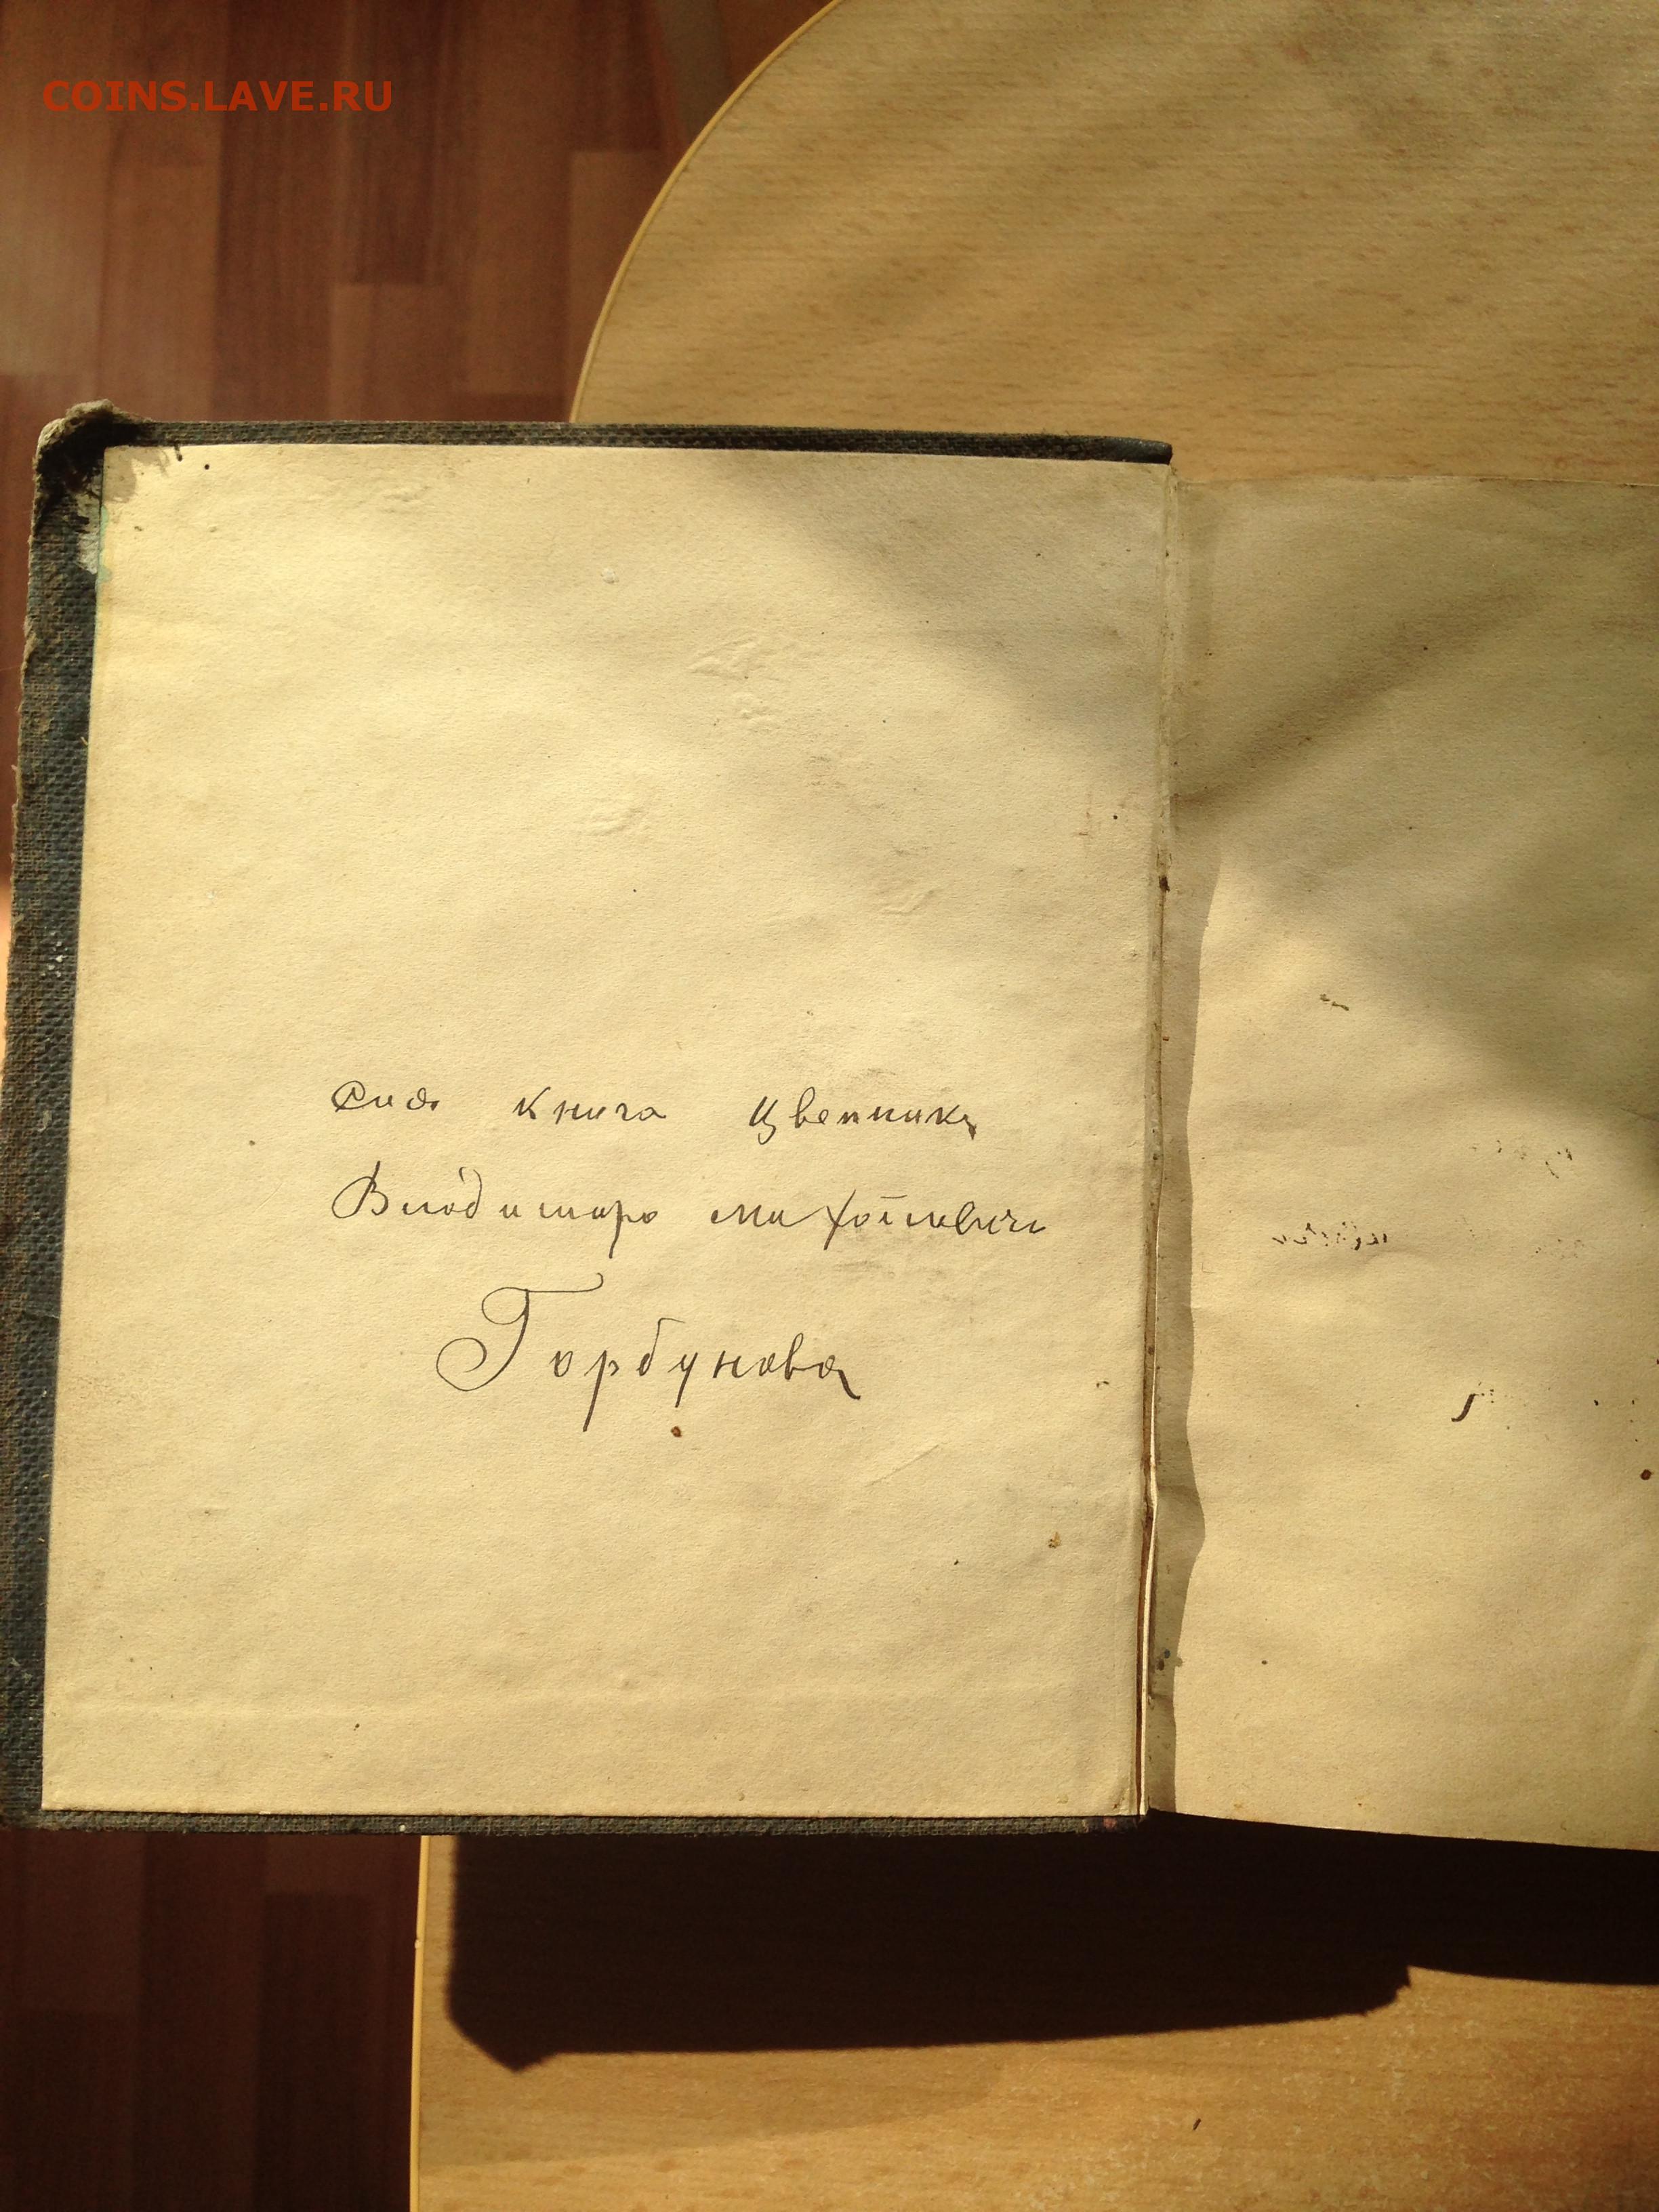 COINS.LAVE.RU
Сия книга Цветник
Владимира михаиловича
Горбунова